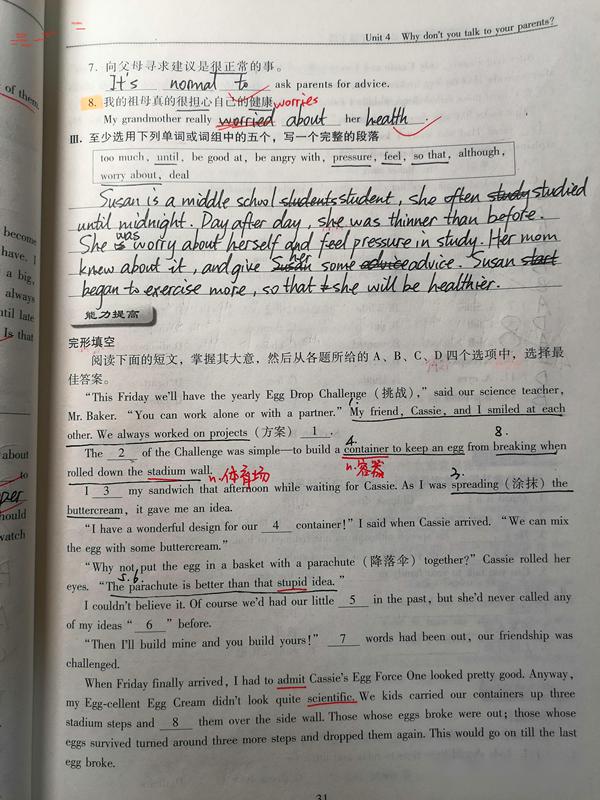 Unit 4 Why don't you talk to your parents?
7. 向父母寻求建议是很正常的事。
It's normal to ask parents for advice.
8. 我的祖母真的很担心自己的健康。
worries
My grandmother really worried about her health.
Ⅲ. 至少选用下列单词或词组中的五个，写一个完整的段落
too much, until, be good at, be angry with, pressure, feel, so that, although,
worry about, deal
Susan is a middle school students student, she often study studied
until midnight. Day after day, she was thinner than before.
She is was worry about herself and feel pressure in study. Her mom
knew about it, and give Susan her some advice advice. Susan start
began to exercise more, so that she will be healthier.
能力提高
完形填空
阅读下面的短文，掌握其大意，然后从各题所给的 A、B、C、D 四个选项中，选择最
佳答案。
"This Friday we'll have the yearly Egg Drop Challenge（挑战）," said our science teacher,
Mr. Baker. "You can work alone or with a partner." My friend, Cassie, and I smiled at each
other. We always worked on projects（方案） 1 .
4. 8.
The 2 of the Challenge was simple—to build a container to keep an egg from breaking when
rolled down the stadium wall. n.体育场 n.容器
3.
I 3 my sandwich that afternoon while waiting for Cassie. As I was spreading（涂抹）the
buttercream, it gave me an idea.
"I have a wonderful design for our 4 container!" I said when Cassie arrived. "We can mix
the egg with some buttercream."
"Why not put the egg in a basket with a parachute（降落伞）together?" Cassie rolled her
5. 6.
eyes. "The parachute is better than that stupid idea."
I couldn't believe it. Of course we'd had our little 5 in the past, but she'd never called any
of my ideas " 6 " before.
"Then I'll build mine and you build yours!" 7 words had been out, our friendship was
challenged.
When Friday finally arrived, I had to admit Cassie's Egg Force One looked pretty good. Anyway,
my Egg-cellent Egg Cream didn't look quite scientific. We kids carried our containers up three
stadium steps and 8 them over the side wall. Those whose eggs broke were out; those whose
eggs survived turned around three more steps and dropped them again. This would go on till the last
egg broke.
31
of them.
become
have. I
a big,
always
until late
Is that
about
to
should
watch